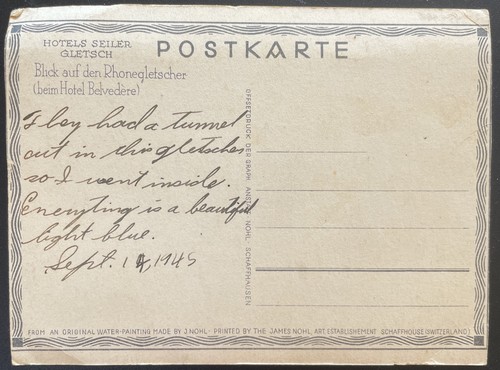 HOTELS SEILER
GLETSCH
POSTKARTE
Blick auf den Rhonegletscher
(beim Hotel Belvedère)
They had a tunnel
cut in this gletscher
so I went inside.
Everyting is a beautiful
light blue.
Sept. 14, 1945
OFFSETDRUCK DER GRAPH. ANSTALT NOHL, SCHAFFHAUSEN
FROM AN ORIGINAL WATER-PAINTING MADE BY J. NOHL · PRINTED BY THE JAMES NOHL, ART. ESTABLISHEMENT SCHAFFHOUSE (SWITZERLAND)